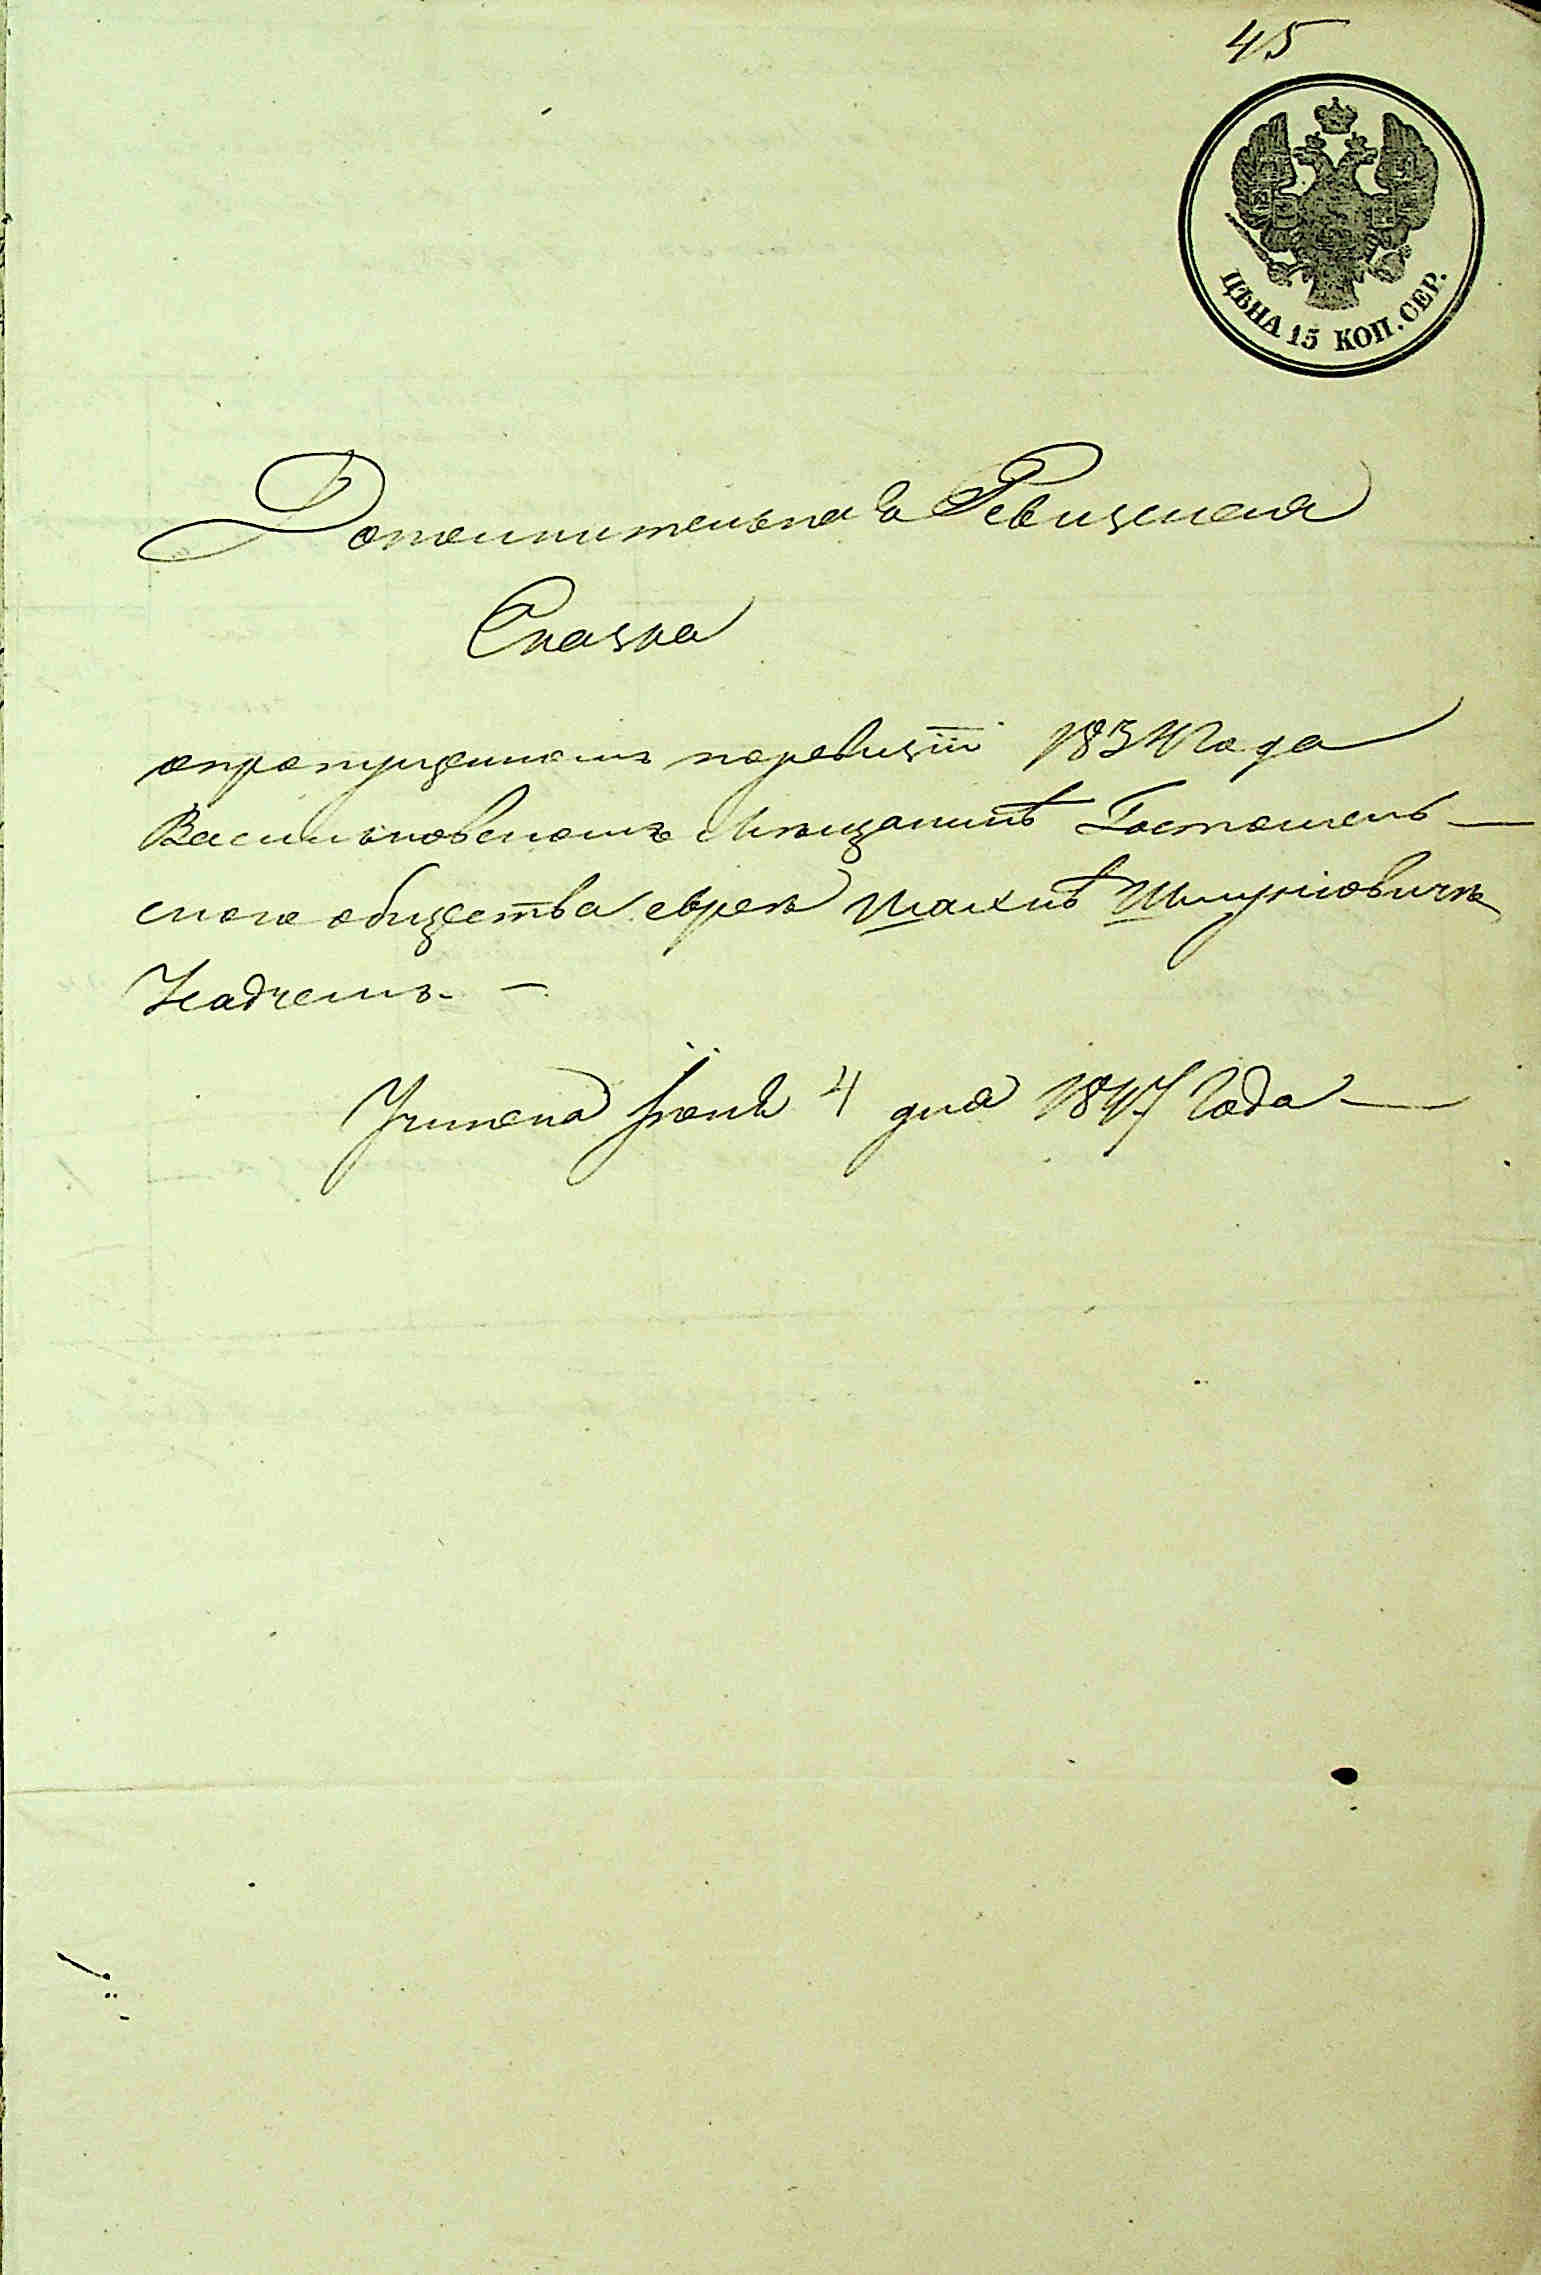 45
ЦѢНА 15 КОП. СЕР.
Дополнительная Ревизская
Сказка
опропущенномъ поревизіи 1834 года
Васильковскомъ Мѣщанинѣ Гостомель-
ского общества еврея Шлиомовичъ
Учинена Іюня 4 дня 1847 Года